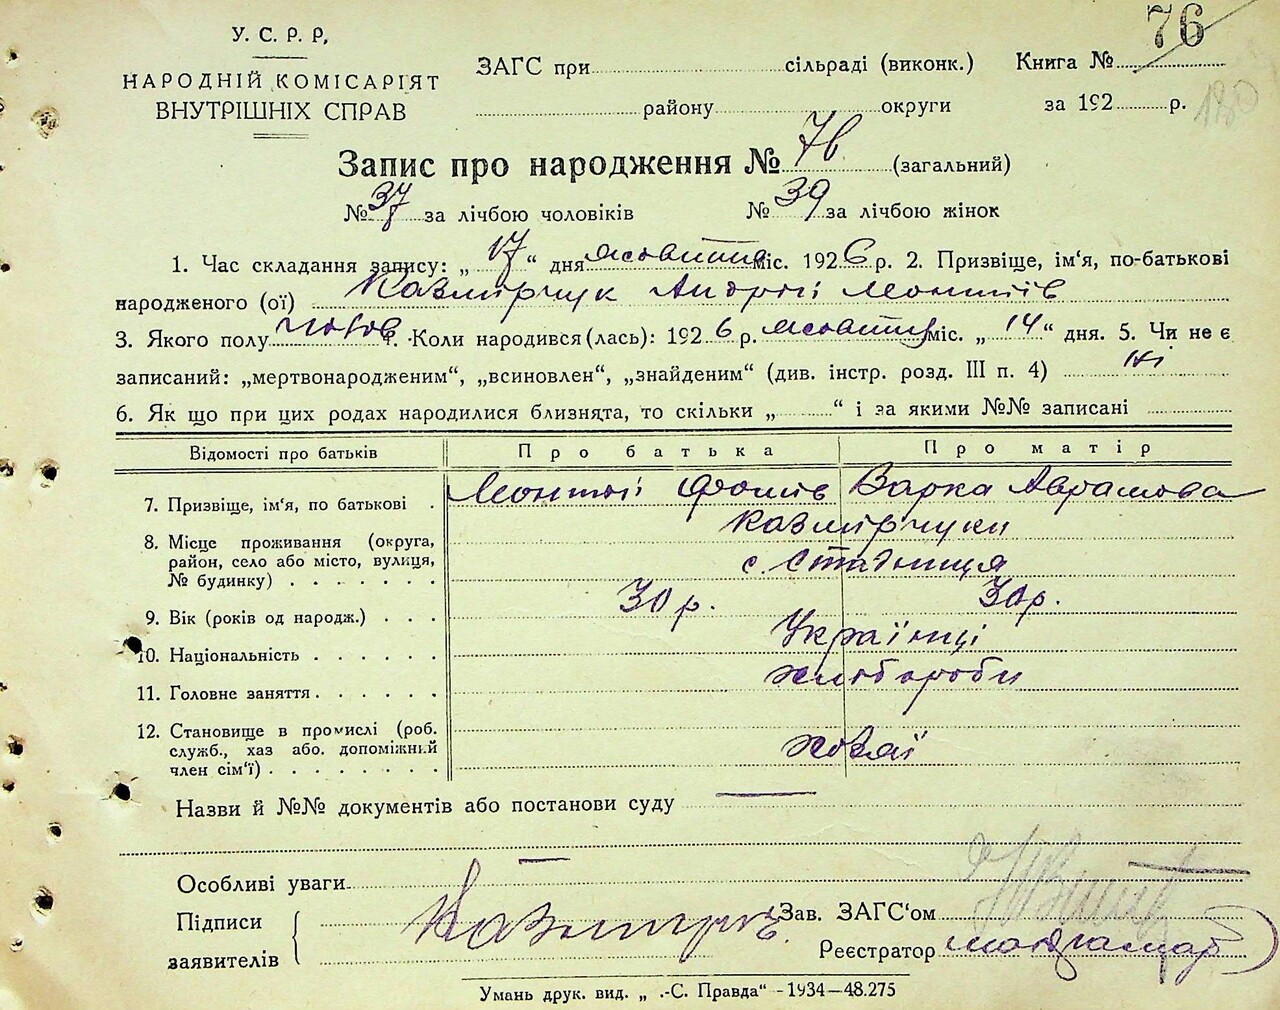 У. С. Р. Р,
НАРОДНІЙ КОМІСАРІЯТ
ВНУТРІШНІХ СПРАВ
76
ЗАГС при сільраді (виконк.) Книга №
району округи за 192 р. 180
Запис про народження № 76 (загальний)
№ 37 за лічбою чоловіків № 39 за лічбою жінок
1. Час складання запису: „ 17 “ дня жовтня міс. 1926 р. 2. Призвіще, ім'я, по-батькові
народженого (ої) Казмірчук Андрій Монтіїв
3. Якого полу чолов. Коли народився (лась): 1926 р. жовтня міс. „ 14 “ дня. 5. Чи не є
записаний: „мертвонародженим“, „всиновлен“, „знайденим“ (див. інстр. розд. III п. 4) ні
6. Як що при цих родах народилися близнята, то скільки „ “ і за якими №№ записані
Відомості про батьків Про батька Про матір
7. Призвіще, ім'я, по батькові . Монтій Фомів Варка Аврамова
Казмірчуки
8. Місце проживання (округа,
район, село або місто, вулиця,
№ будинку) . . . . . . . с. Стадниця
9. Вік (років од народж.) . . . 30 р. 30 р.
10. Національність . . . . . . Українці
11. Головне заняття . . . . . . хлібороби
12. Становище в промислі (роб.
служб., хаз або. допоміжний
член сім'ї) . . . . . . . . хозяї
Назви й №№ документів або постанови суду
Особливі уваги
Підписи
заявителів
Зав. ЗАГС'ом
Реєстратор
Умань друк. вид. „ .-С. Правда“ - 1934—48.275